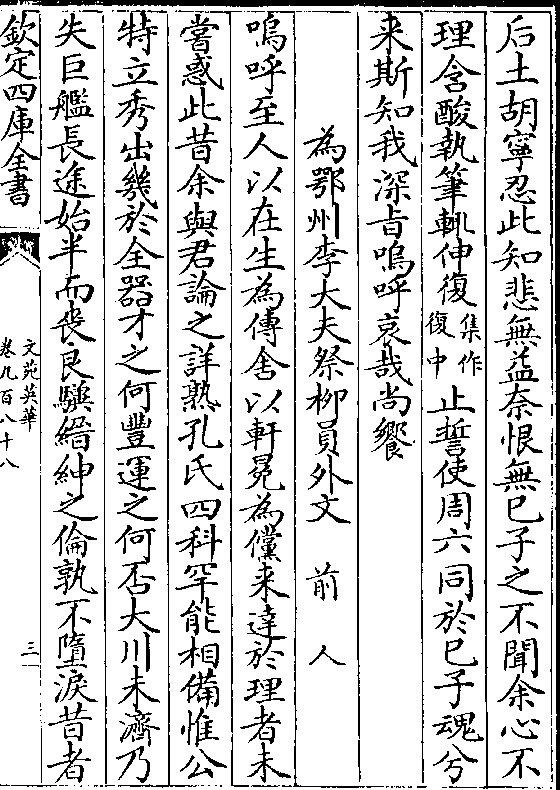 后土胡寧忍此知悲無益奈恨無已子之不聞余心不
理含酸執筆輒伸復集作復中止誓使周六同於已子魂兮
来斯知我深旨嗚呼哀哉尚饗
為鄂州李大夫祭柳員外文 前人
嗚呼至人以在生為傳舍以軒冕為儻来達於理者未
嘗惑此昔余與君論之詳熟孔氏四科罕能相備惟公
特立秀出幾於全器才之何豐運之何否大川未濟乃
失巨艦長途始半而喪良驥縉紳之倫孰不墮淚昔者
欽定四庫全書
文苑英華
卷九百八十八
三